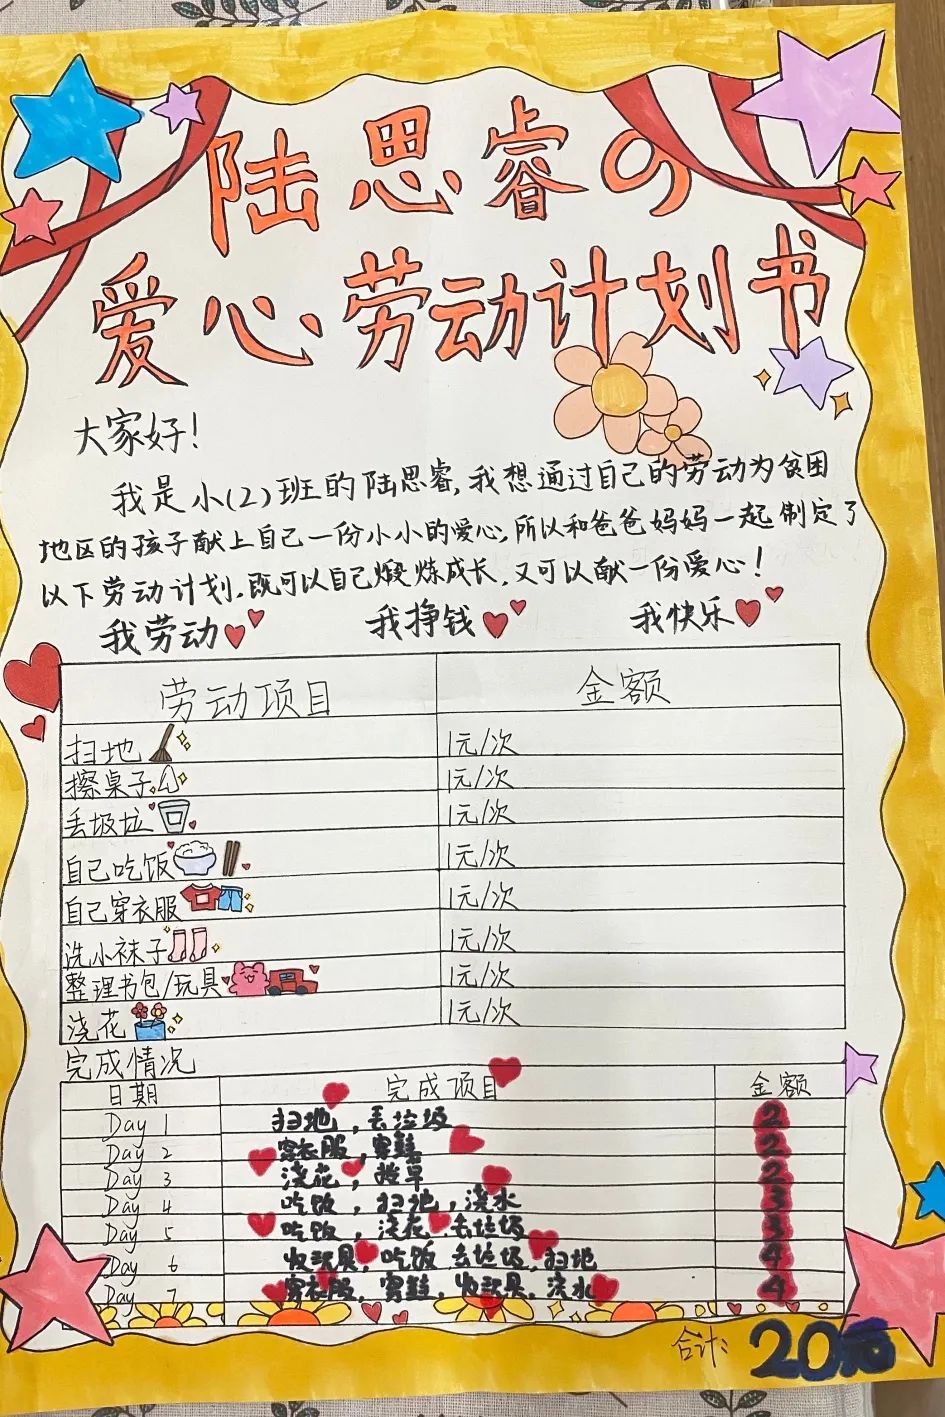 陆思睿の
爱心劳动计划书
大家好!
我是小(2)班的陆思睿,我想通过自己的劳动为贫困
地区的孩子献上自己一份小小的爱心,所以和爸爸妈妈一起制定了
以下劳动计划,既可以自己煅炼成长,又可以献一份爱心!
我劳动 我挣钱 我快乐
劳动项目 金额
扫地 1元/次
擦桌子 1元/次
丢圾垃 1元/次
自己吃饭 1元/次
自己穿衣服 1元/次
洗小袜子 1元/次
整理书包/玩具 1元/次
浇花 1元/次
完成情况
日期 完成项目 金额
Day 1 扫地,丢垃圾 2
Day 2 穿衣服,穿鞋 2
Day 3 浇花, 2
Day 4 吃饭,扫地,浇水 3
Day 5 吃饭,浇花,丢垃圾 3
Day 6 收玩具,吃饭,丢垃圾,扫地 4
Day 7 穿衣服,穿鞋,收玩具,浇水 4
合计: 20元